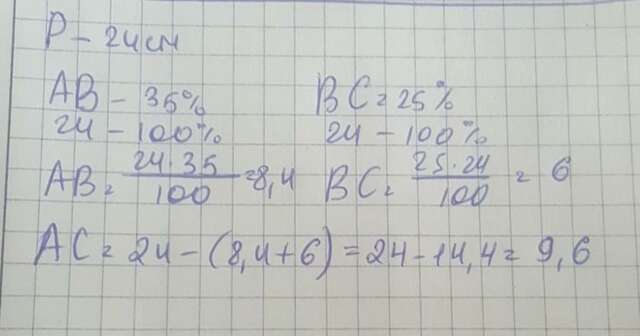 P - 24 см
AB - 35% BC = 25%
24 - 100% 24 - 100%
AB = 24·35/100 = 8,4 BC = 25·24/100 = 6
AC = 24 - (8,4+6) = 24 - 14,4 = 9,6